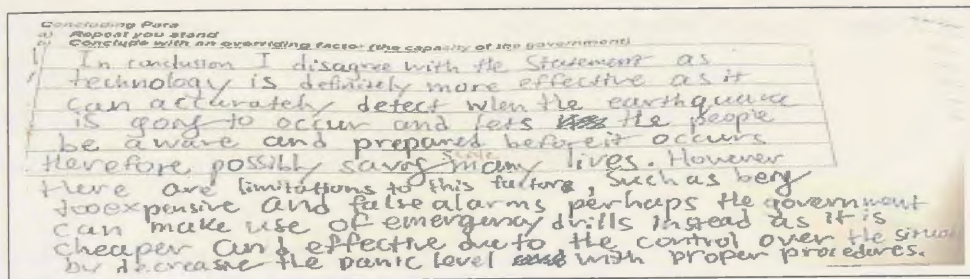 Concluding Para
a) Repeat you stand
b) Conclude with an overriding factor (the capacity of the government)
In conclusion I disagree with the Statement as
technology is definitely more effective as it
can accurately detect when the earthquake
is going to occur and lets the people
be aware and prepared before it occurs
therefore possibly saving many lives. However
there are limitations to this factors, such as being
too expensive and false alarms perhaps the government
can make use of emergency drills instead as it is
cheaper and effective due to the control over the
by decrease the panic level with proper procedures.